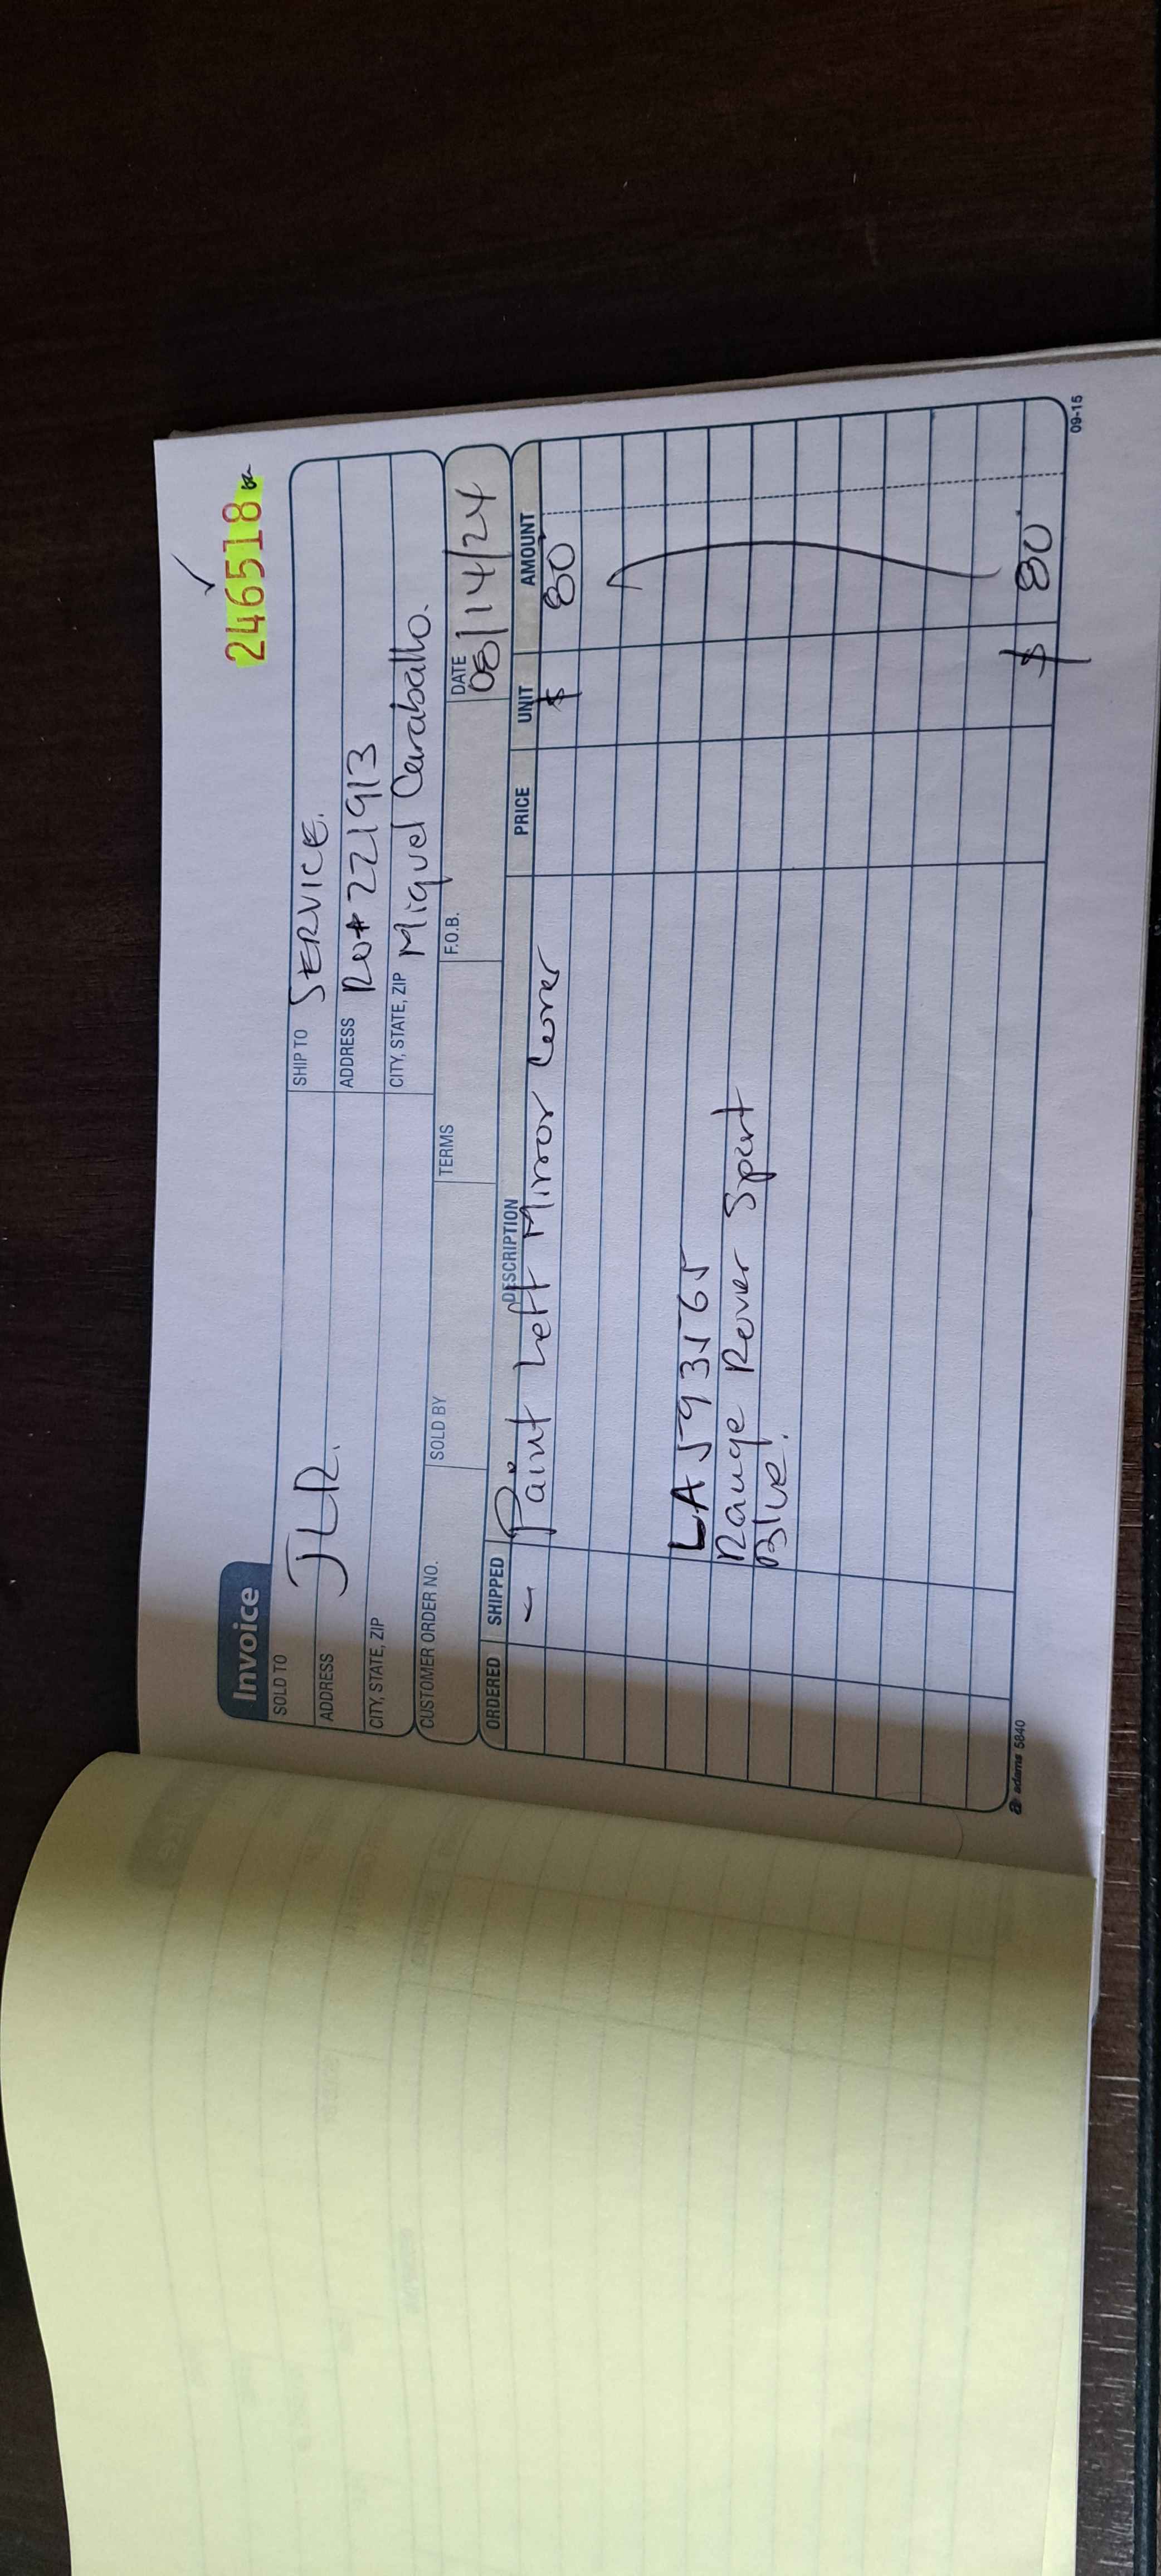 246518
Invoice
SOLD TO JLR.
SHIP TO SERVICE.
ADDRESS
ADDRESS Ro# 221913
CITY, STATE, ZIP
CITY, STATE, ZIP Miguel Caraballo.
CUSTOMER ORDER NO. SOLD BY TERMS F.O.B. DATE 08/14/24
ORDERED SHIPPED DESCRIPTION PRICE UNIT AMOUNT
Paint Left Mirror Cover $ 80
LA593565
Range Rover Sport
Blue.
$ 80
adams 5840 09-15